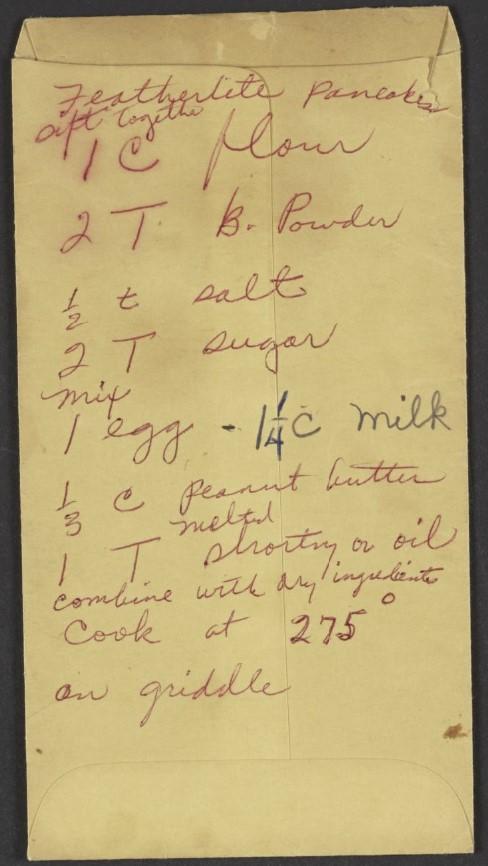 Featherlite Pancakes
sift together
1 C flour
2 T B. Powder
1/2 t salt
2 T sugar
mix
1 egg - 1 1/4 C Milk
1/3 C Peanut butter
melted
1 T shortng or oil
combine with dry ingredients
Cook at 275°
on griddle